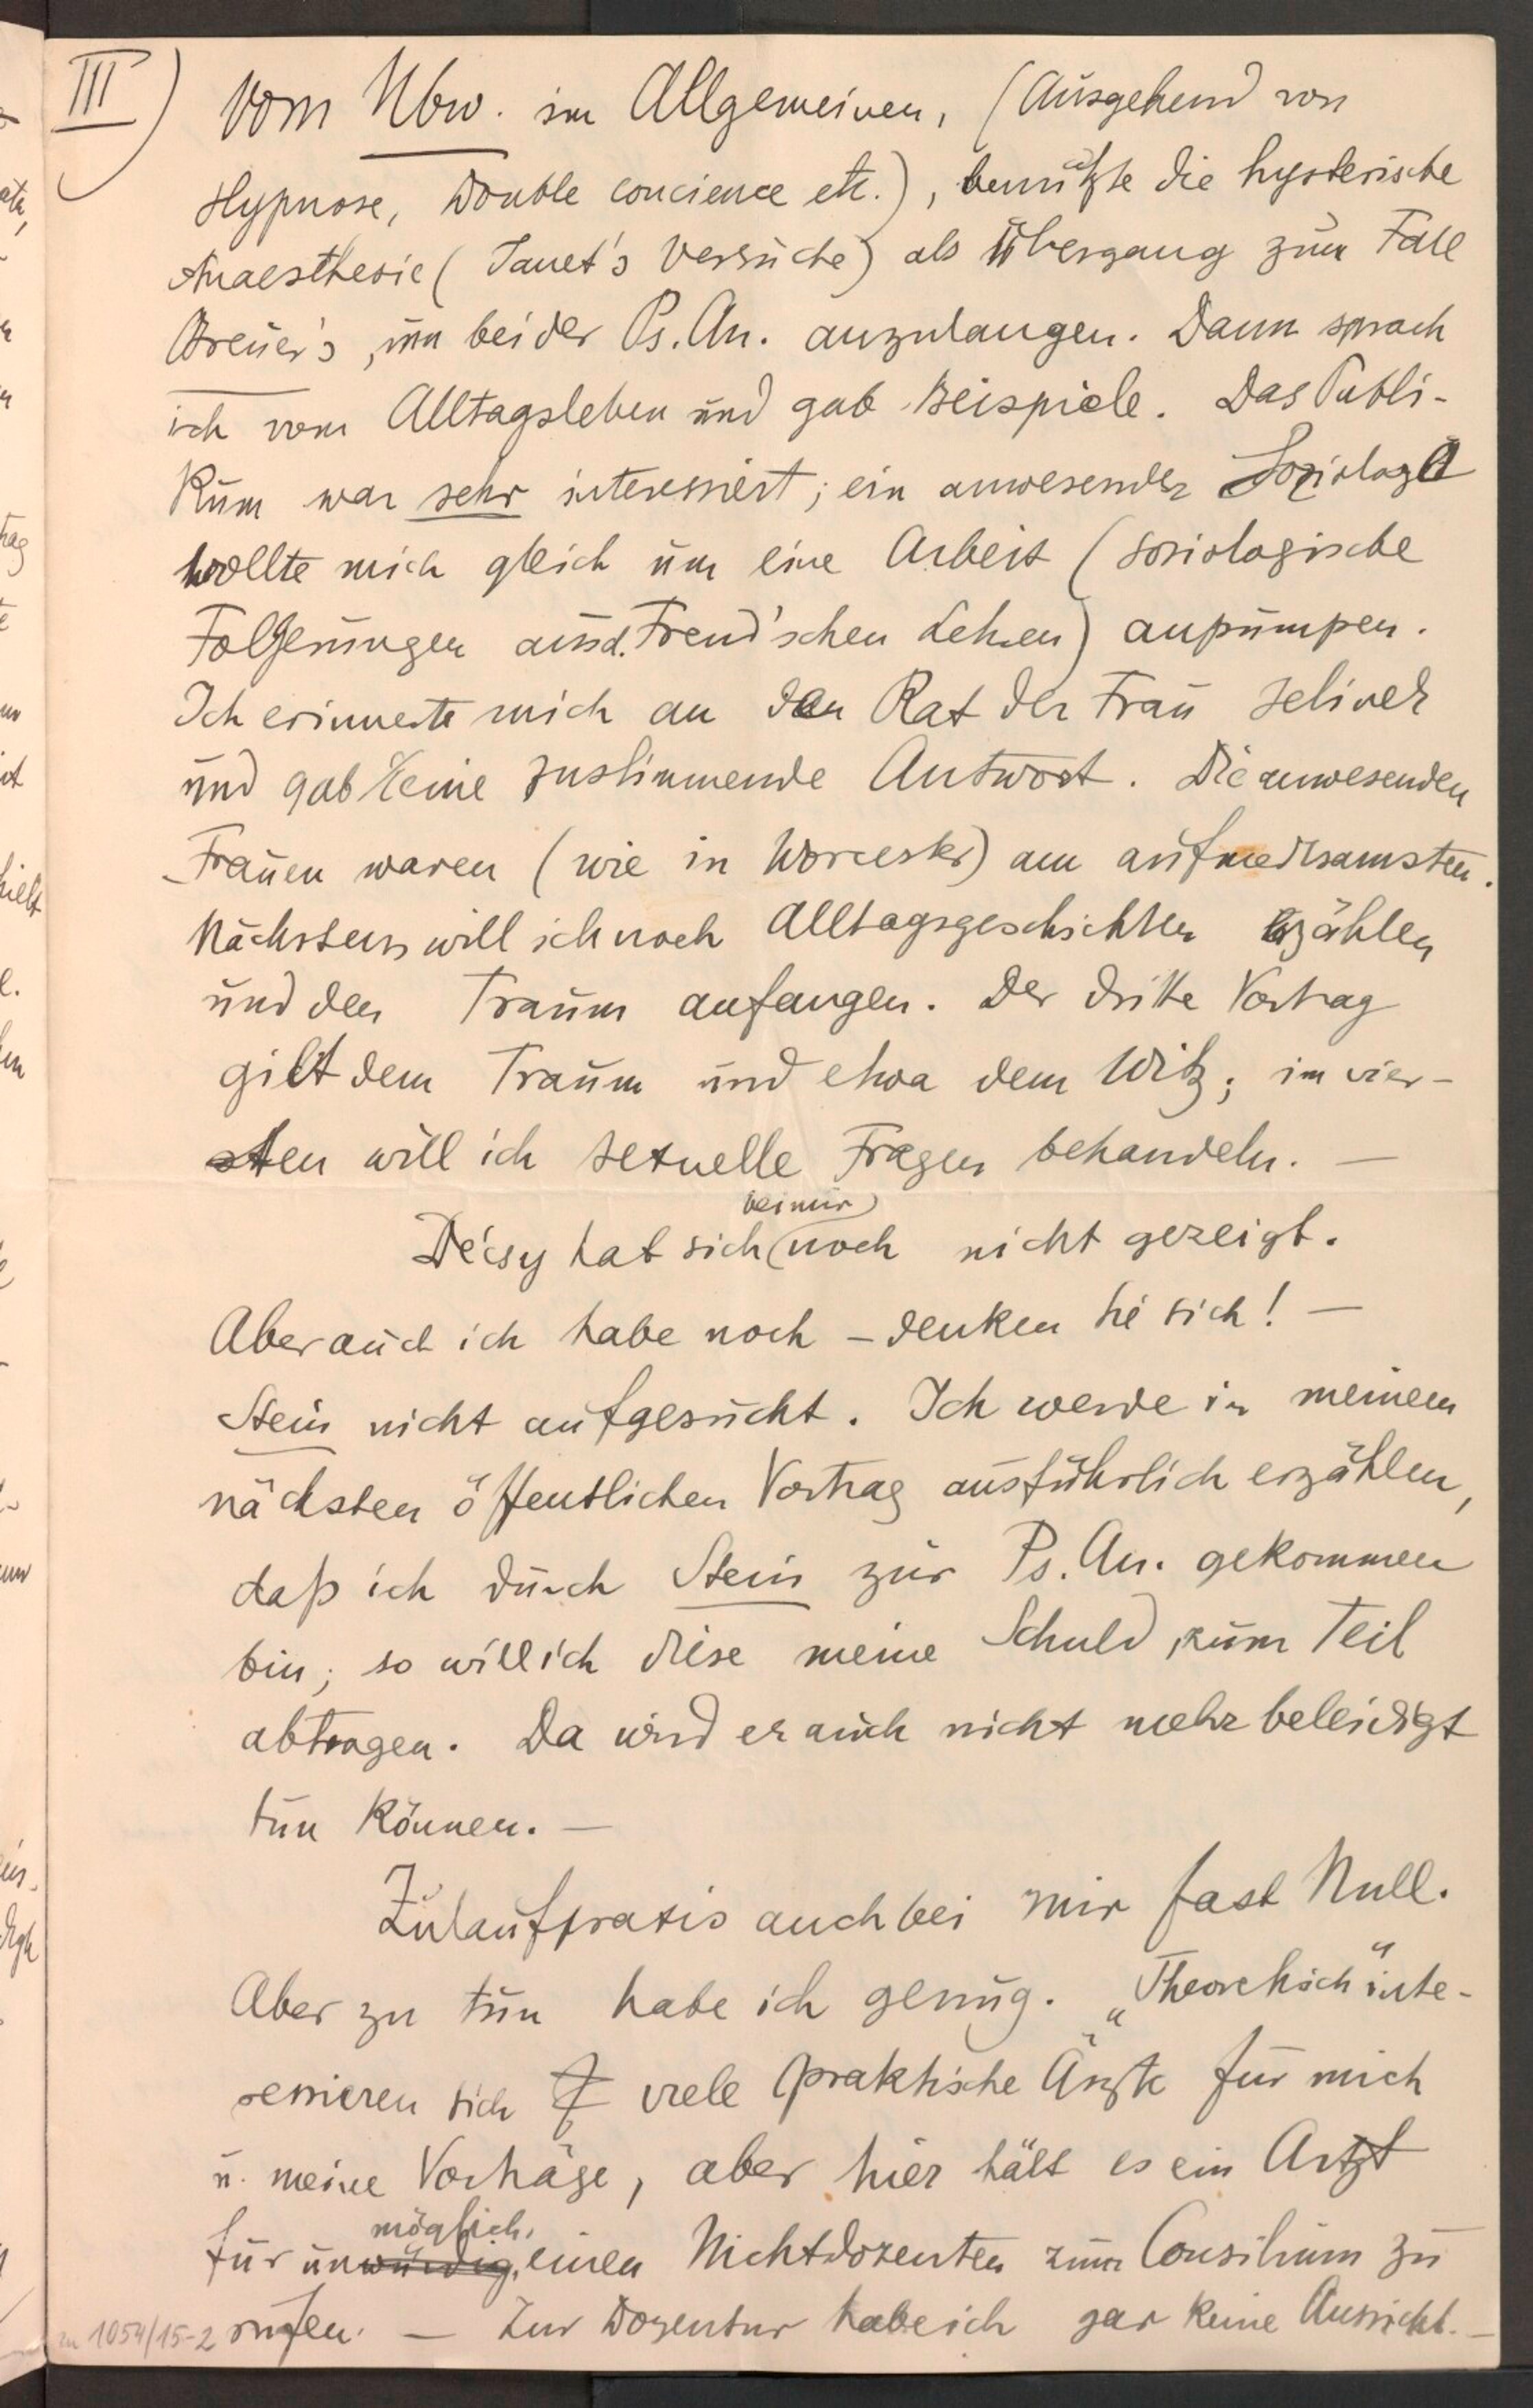 III) vom Ubw. im Allgemeinen, (Ausgehend von
Hypnose, Double concience etc.), benützte die hysterische
Anaesthesie (Janet's Versuche) als Übergang zum Fall
Breuer's, um bei der Ps. An. anzulangen. Dann sprach
ich vom Alltagsleben und gab Beispiele. Das Publi-
kum war sehr interessiert; ein anwesender Soziologe
wollte mich gleich um eine Arbeit (soziologische
Folgerungen aus d. Freud'schen Lehren) anpumpen.
Ich erinnerte mich an den Rat der Frau
und gab keine zustimmende Antwort. Die anwesenden
Frauen waren (wie in Worcester) am aufmerksamsten.
Nächstens will ich noch Alltagsgeschichten erzählen
und den Traum anfangen. Der dritte Vortrag
gilt dem Traum und etwa dem Witz; im vier-
ten will ich sexuelle Fragen behandeln. —
Décsy hat sich (bei mir) noch nicht gezeigt.
Aber auch ich habe noch – denken Sie sich! —
Stein nicht aufgesucht. Ich werde in meinem
nächsten öffentlichen Vortrag ausführlich erzählen,
daß ich durch Stein zur Ps. An. gekommen
bin; so will ich diese meine Schuld zum Teil
abtragen. Da wird er auch nicht mehr beleidigt
tun können. —
Zulaufpraxis auch bei mir fast Null.
Aber zu tun habe ich genug. „Theoretisch" inte-
ressieren sich viele praktische Ärzte für mich
u. meine Vorträge, aber hier hält es ein Artzt
für unmöglich, einen Nichtdozenten zum Consilium zu
rufen. — Zur Dozentur habe ich gar keine Aussicht. —
zu 1054/15-2